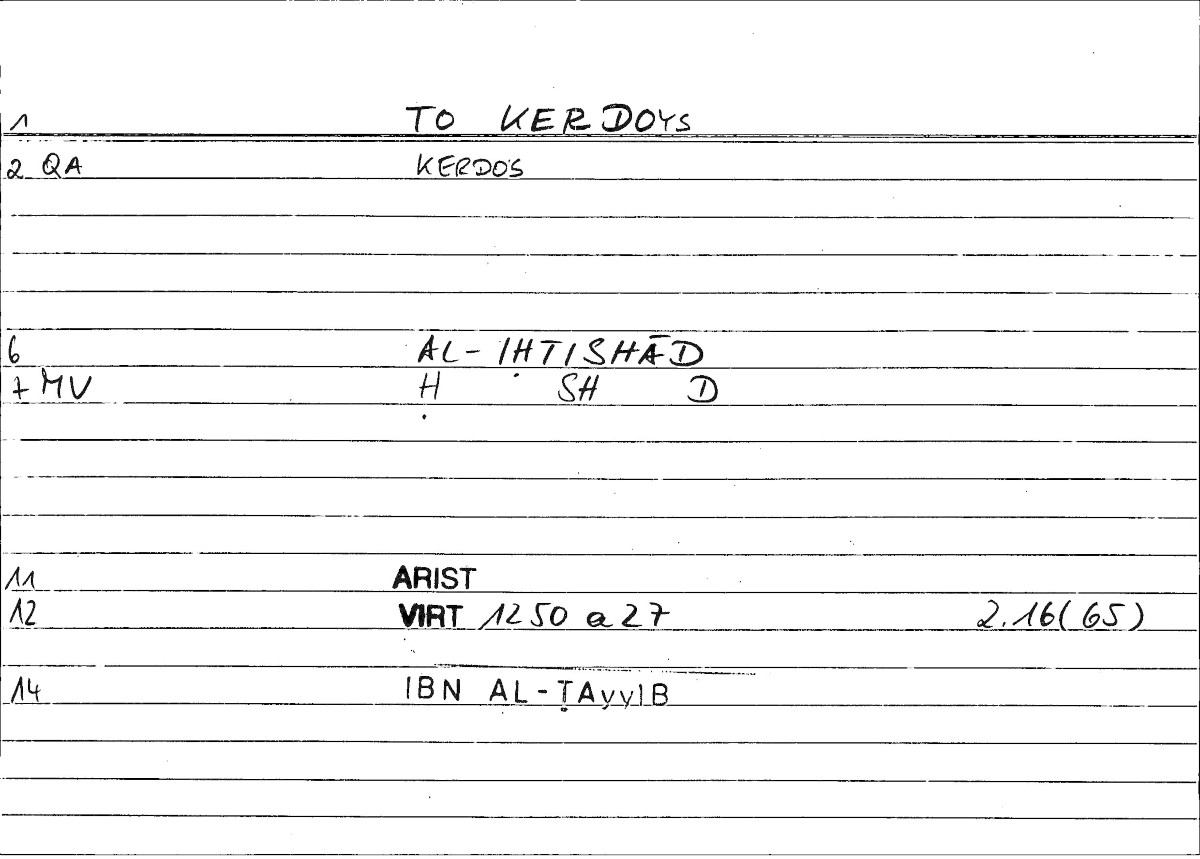 1 TO KERDOYS
2 QA KERDOS
6 AL-IḤTISHĀD
7 MV Ḥ SH D
11 ARIST
12 VIRT 1250 a 27 2.16(65)
14 IBN AL-ṬAyyIB